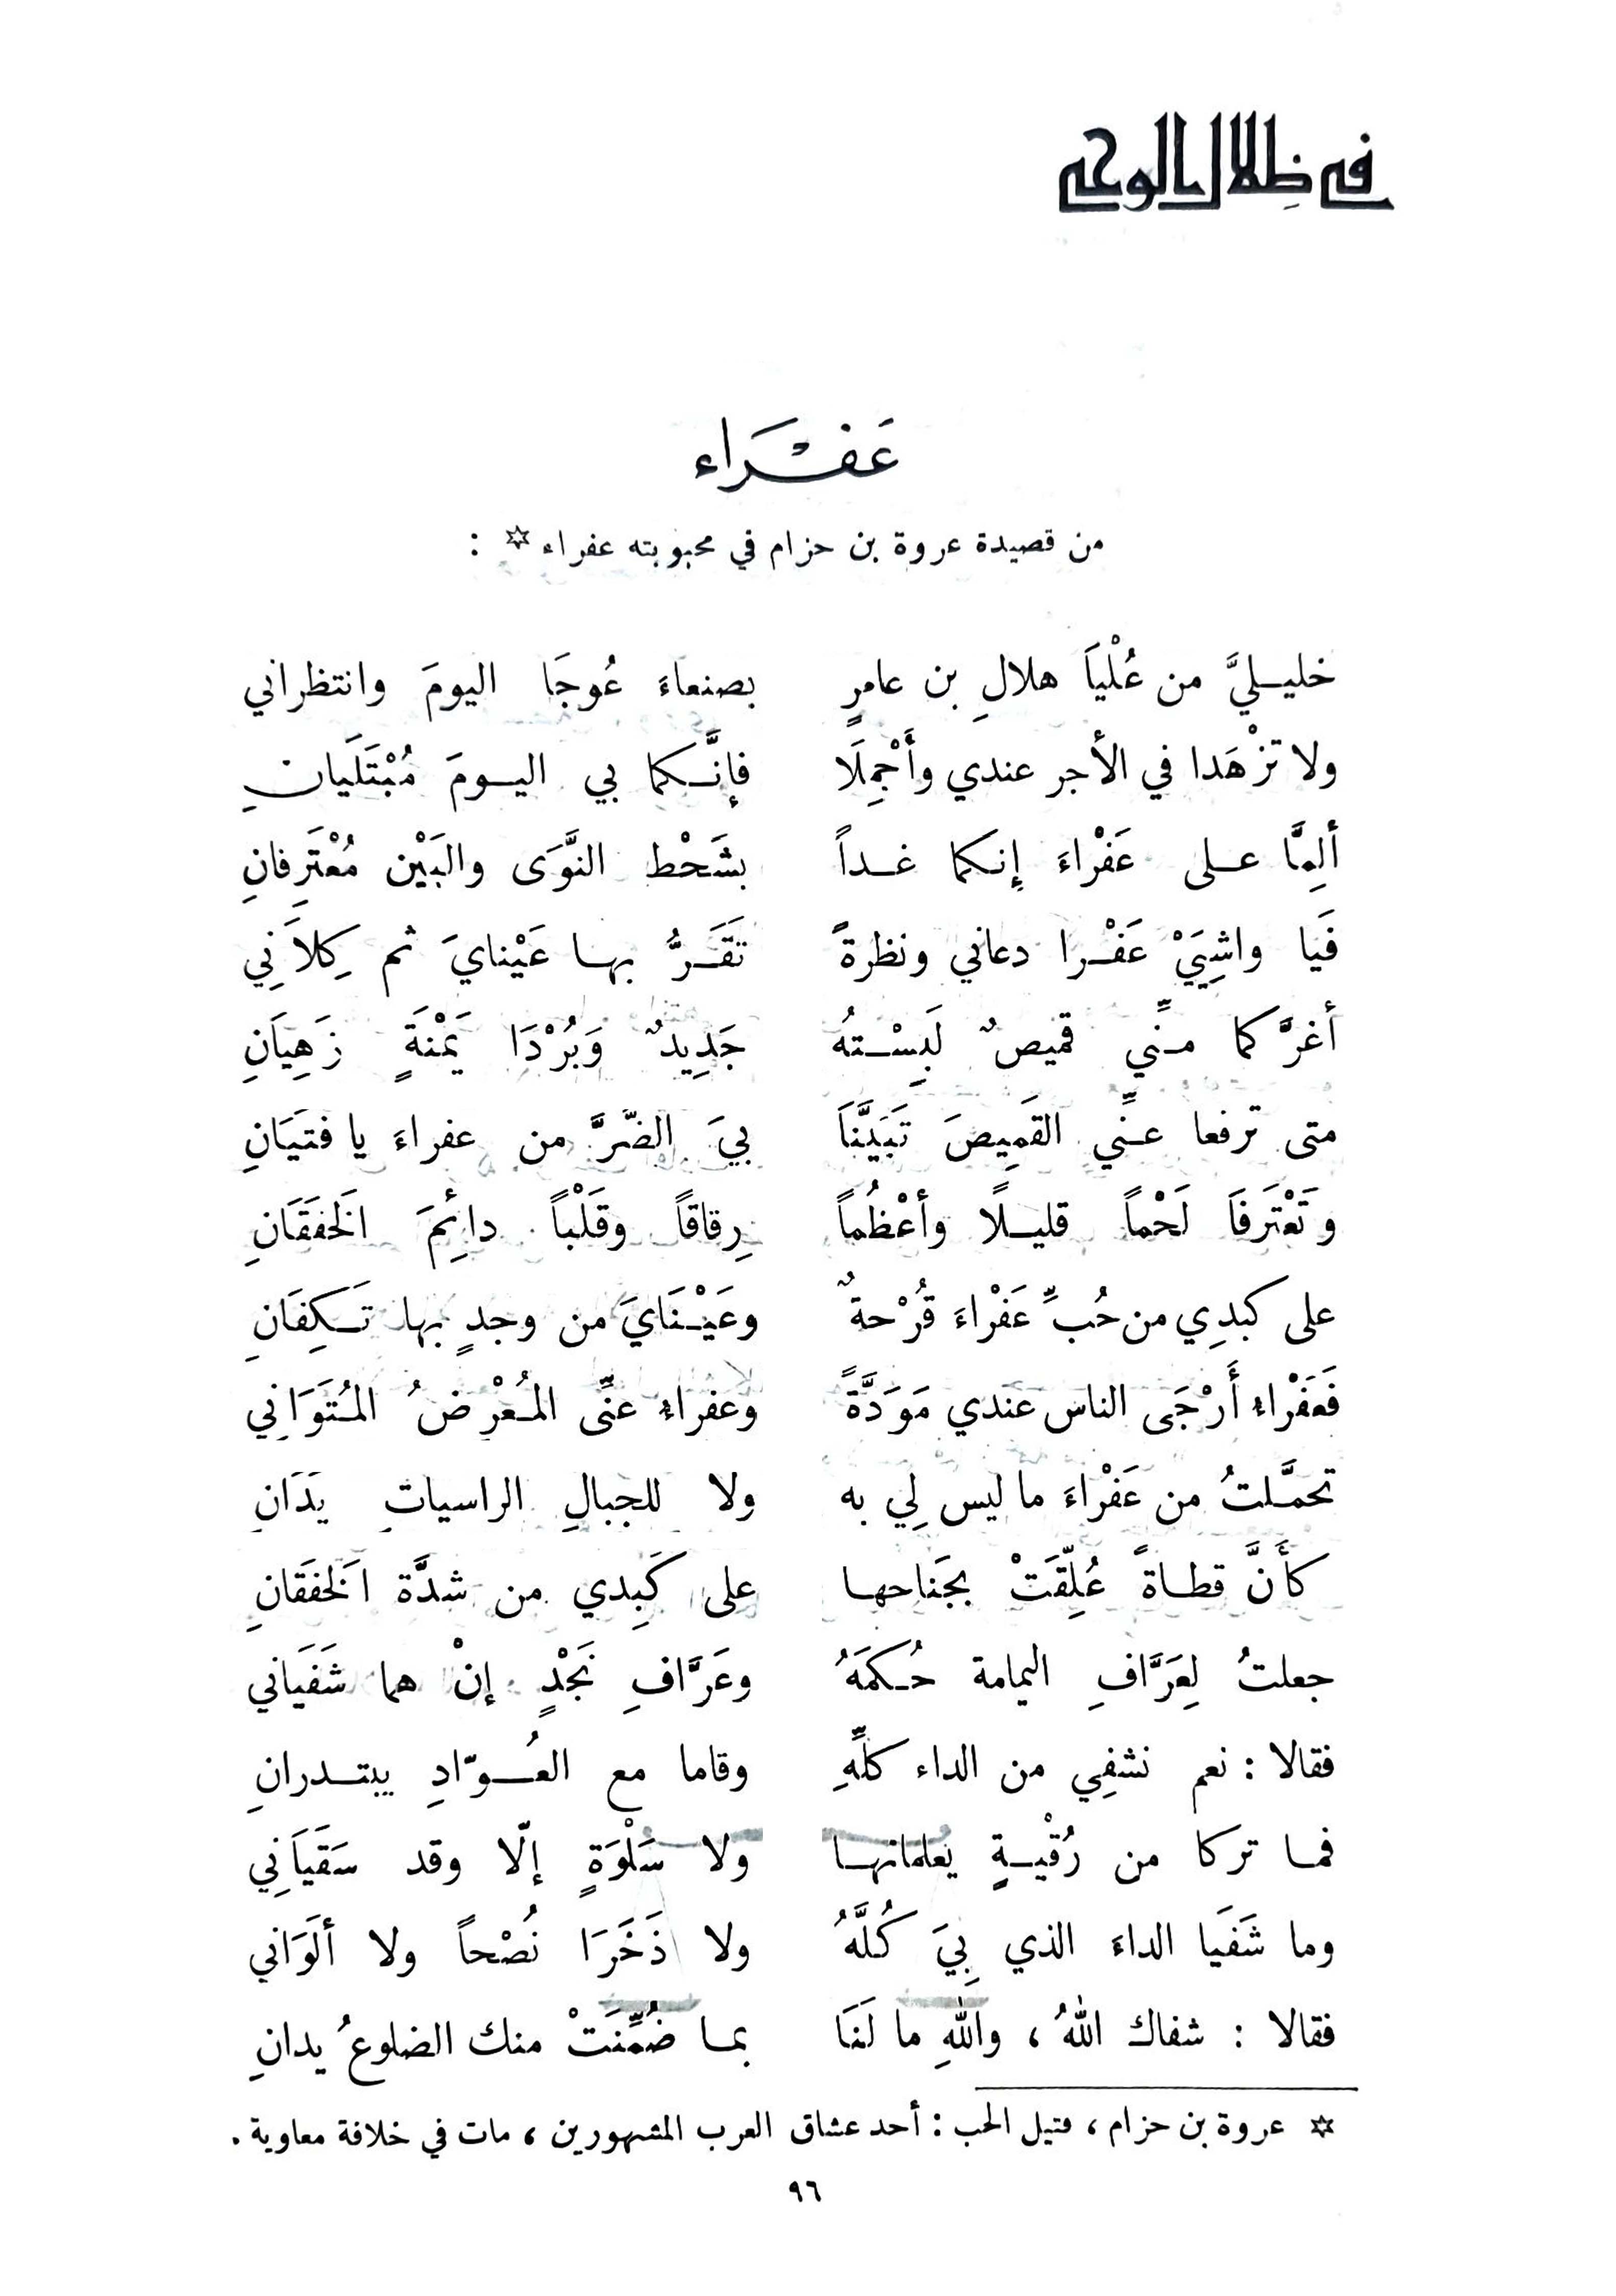 في ظلال الوحي
عَفْرَاء
من قصيدة عروة بن حزام في محبوبته عفراء ☆ :
خليليَّ من عُلْيَا هلالِ بن عامرٍ بصنعاءَ عُوجَا اليومَ وانتظراني
ولا تزْهَدا في الأجر عندي وأَجْمِلَا فإنَّكما بي اليومَ مُبْتَلَيانِ
ألِمَّا على عَفْراءَ إنكما غداً بشَحْط النَّوَى والبَيْن مُعْتَرِفانِ
فَيَا واشِيَيْ عَفْرا دعاني ونظرةً تَقَرُّ بها عَيْنايَ ثم كِلاَنِي
أغرَّكما منِّي قميصٌ لَبِسْتهُ جَدِيدٌ وَبُرْدَا يَمْنَةٍ زَهِيَانِ
متى ترفعا عنِّي القَمِيصَ تَبَيَّنَا بيَ الضّرَّ من عفراءَ يا فتَيَانِ
وتَعْتَرفَا لَحْماً قليلًا وأعْظُماً رِقاقاً وقَلْباً دائِمَ الخَفَقَانِ
على كبدِي من حُبِّ عَفْراءَ قُرْحةٌ وعَيْنَايَ من وجدٍ بها تَكِفَانِ
فَعَفْراءُ أَرْجَى الناس عندي مَوَدَّةً وعفراءُ عنِّى المُعْرضُ المُتَوَانِي
تحمَّلتُ من عَفْراءَ ما ليس لِي به ولا للجبالِ الراسياتِ يَدَانِ
كأنَّ قطاةً عُلِّقَتْ بجَناحها على كَبِدي من شدَّة الخَفَقانِ
جعلتُ لِعَرَّافِ اليمامة حُكمَهُ وعَرَّافِ نَجْدٍ إنْ هما شَفَياني
فقالا : نعم نشفِي من الداء كلِّهِ وقاما مع العُوّادِ يبتدرانِ
فما تركا من رُقْيةٍ يعلمانها ولا سَلْوَةٍ إلّا وقد سَقَيَانِي
وما شَفَيَا الداءَ الذي بِيَ كُلَّهُ ولا ذَخَرَا نُصْحاً ولا ألَوَاني
فقالا : شفاك اللهُ ، واللهِ ما لَنَا بما ضُمِّنَتْ منك الضلوعُ يدانِ
☆ عروة بن حزام ، قتيل الحب : أحد عشاق العرب المشهورين ، مات في خلافة معاوية .
٩٦